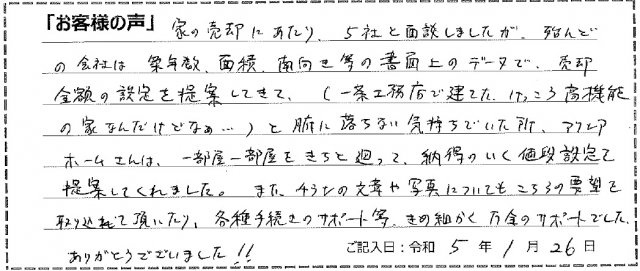 「お客様の声」 家の売却にあたり、5社と面談しましたが、殆んど
の会社は 築年数、面積、南向き等の書面上のデータで、売却
金額の設定を提案してきて、(一条工務店で建てた、けっこう高機能
の家なんだけどなぁ…)と腑に落ちない気持ちでいた所、アクシア
ホームさんは、一部屋一部屋をきちと廻って、納得のいく値段設定で
提案してくれました。また、チラシの文章や写真についてもこちらの要望を
取り込れて頂いたり、各種手続きのサポート等、きめ細かく万全のサポートでした。
ありがとうございました!! ご記入日:令和 5 年 1 月 26 日